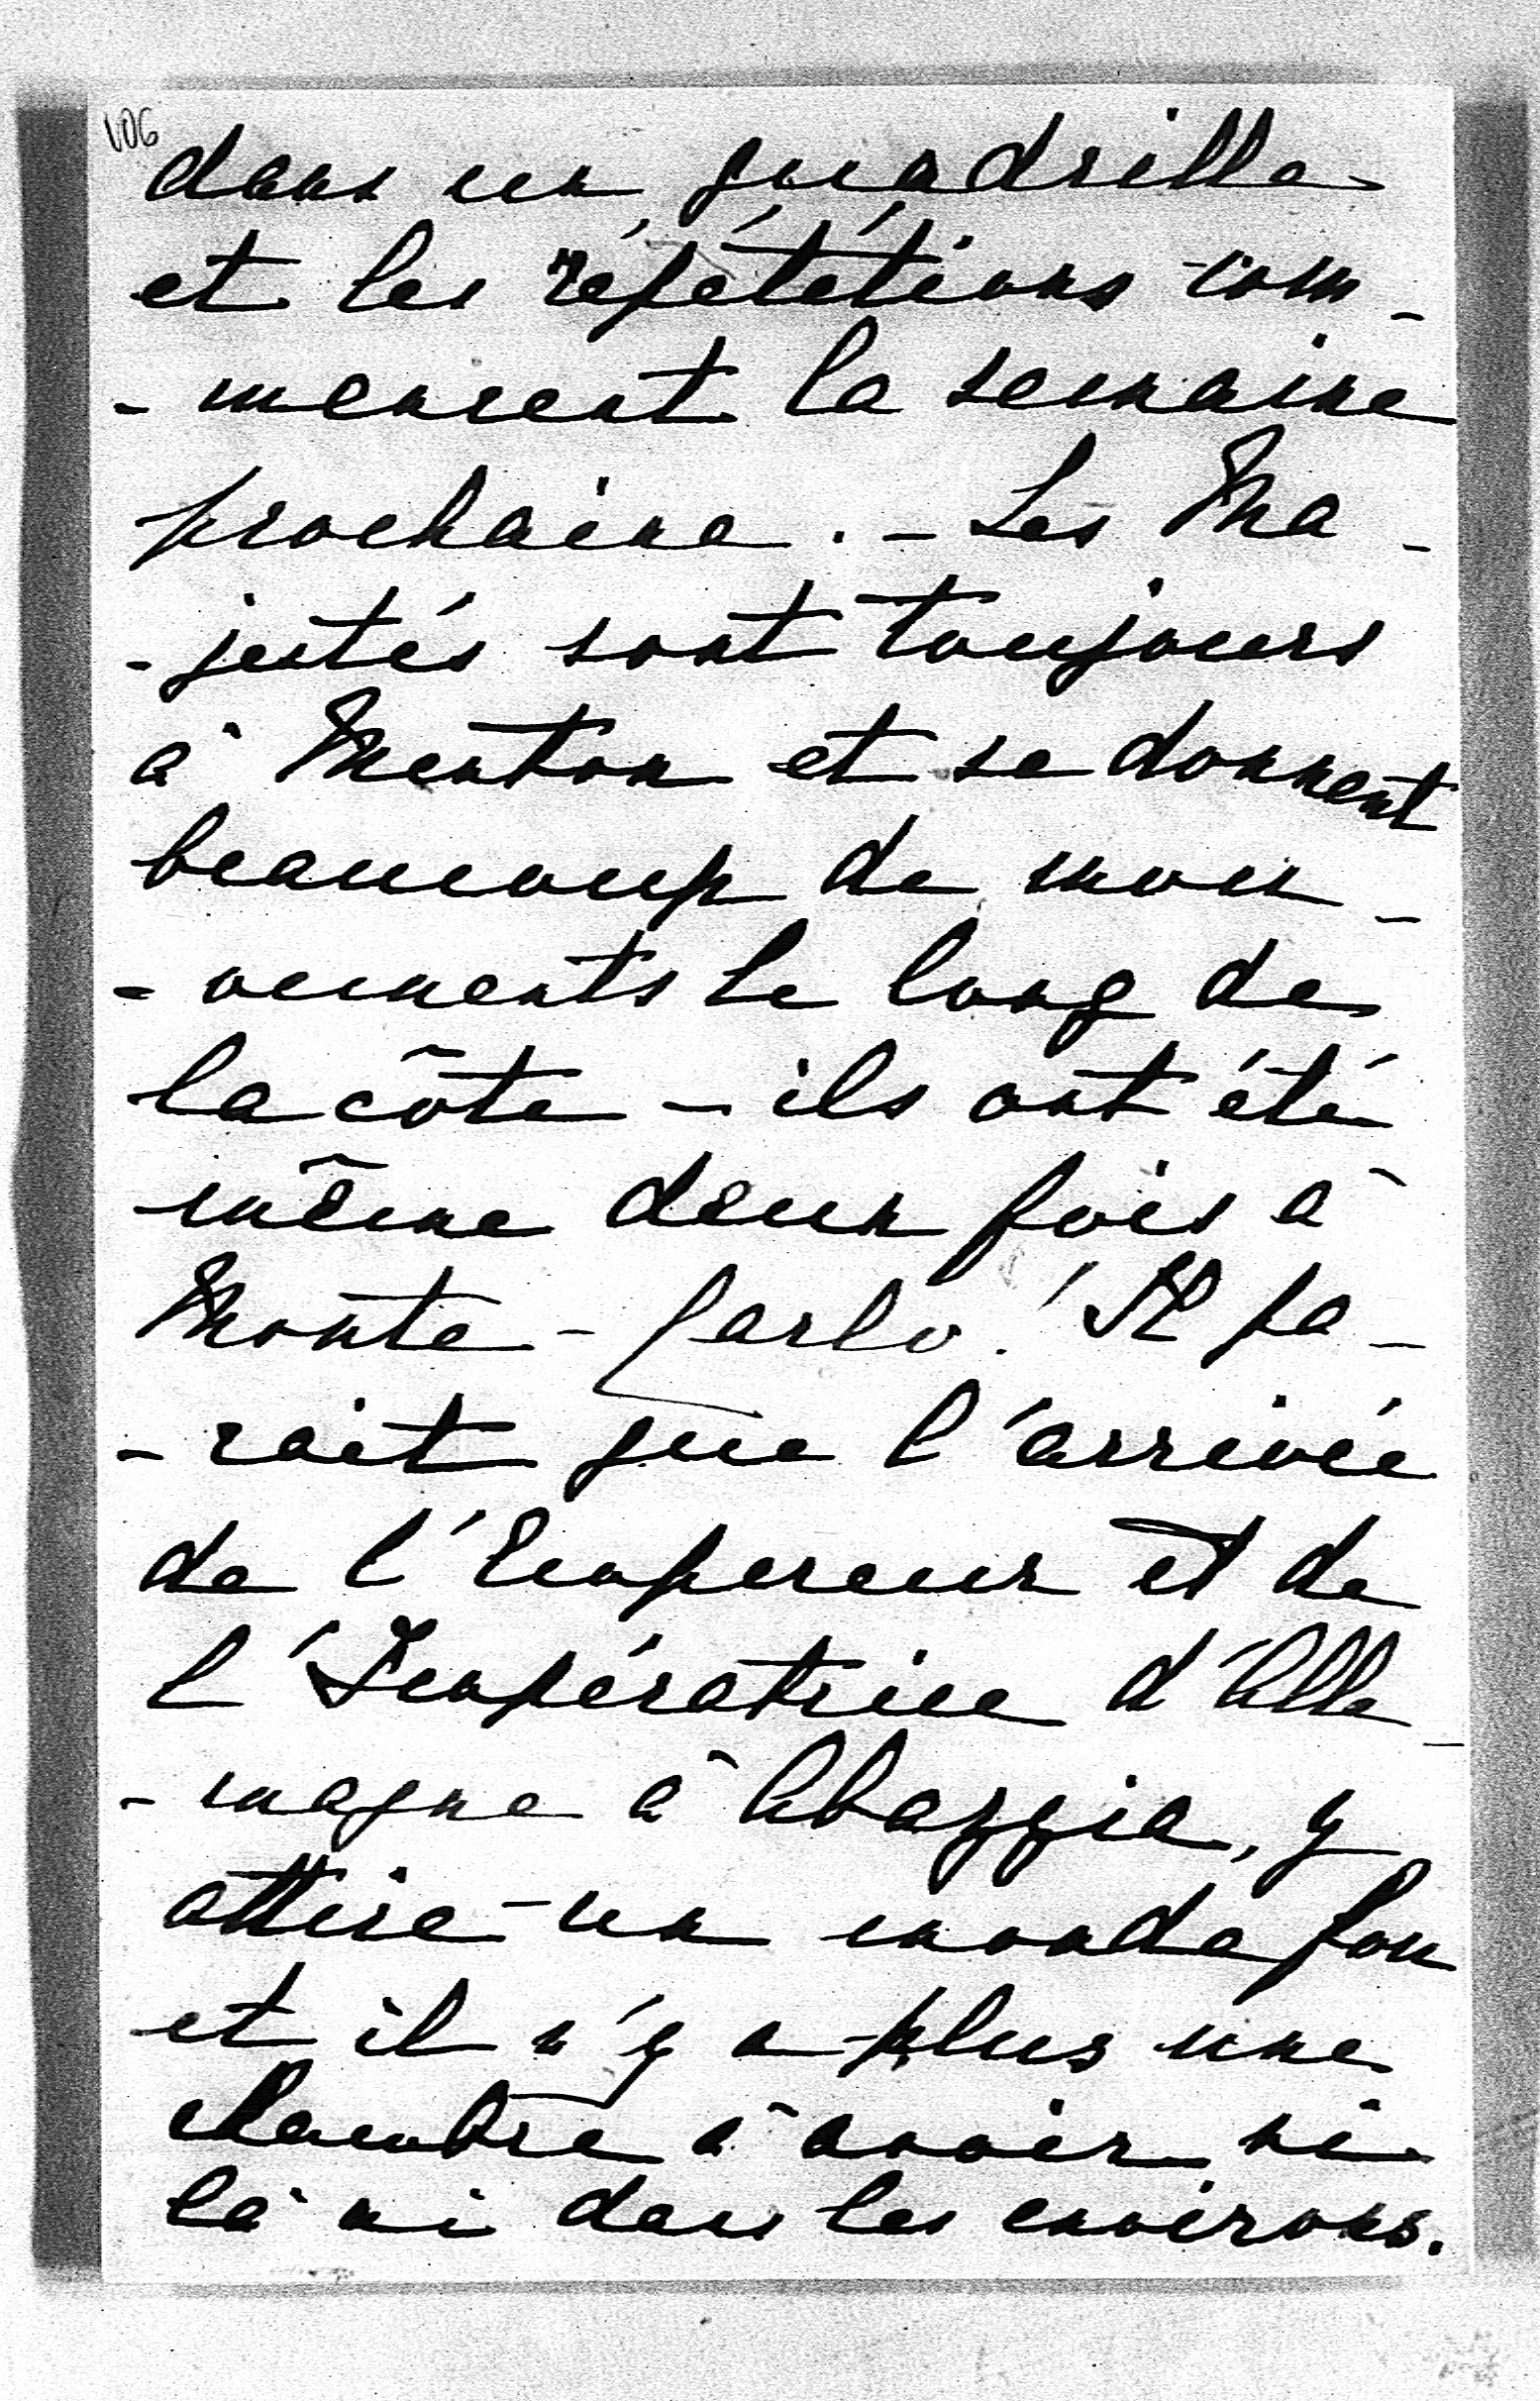 106
dans un quadrille
et les répététions com-
-mencent la semaine
prochaine. - Les Ma-
-jestés sont toujours
à Menton et se donnent
beaucoup de mou-
-vements le long de
la côte - ils ont été
même deux fois à
Monte-Carlo! Il pa-
-rait que l'arrivée
de l'Empereur et de
l'Impératrice d'Alle-
-magne à Abazzia, y
attire un monde fou
et il n'y a plus une
chambre à avoir ni
là ni dans les environs.